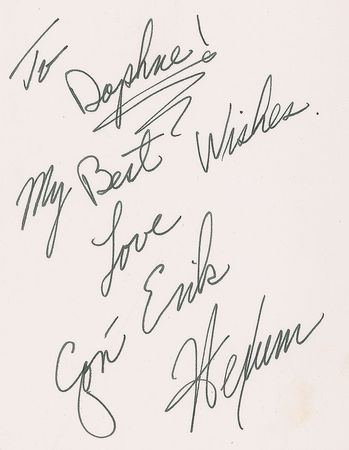 To
Daphne!
My Best Wishes.
Love
Jon Erik
Hexum